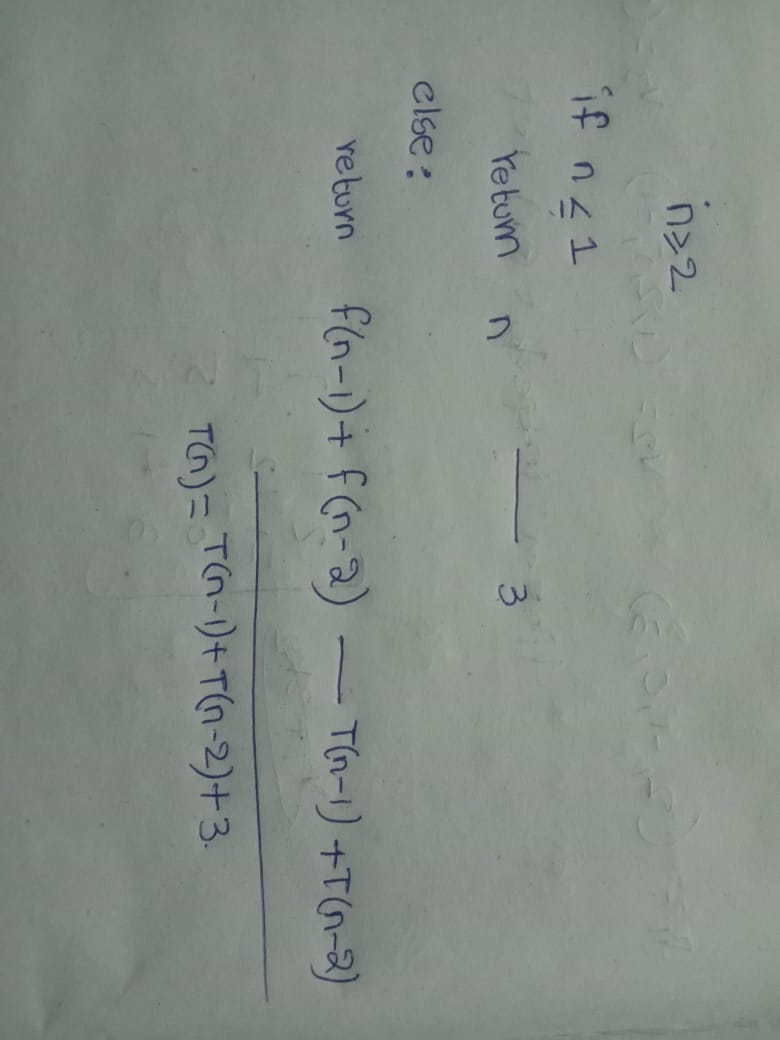 n≥2
if n ≤ 1
return n — 3
else:
return f(n-1) + f(n-2) — T(n-1) + T(n-2)
T(n) = T(n-1) + T(n-2) + 3.